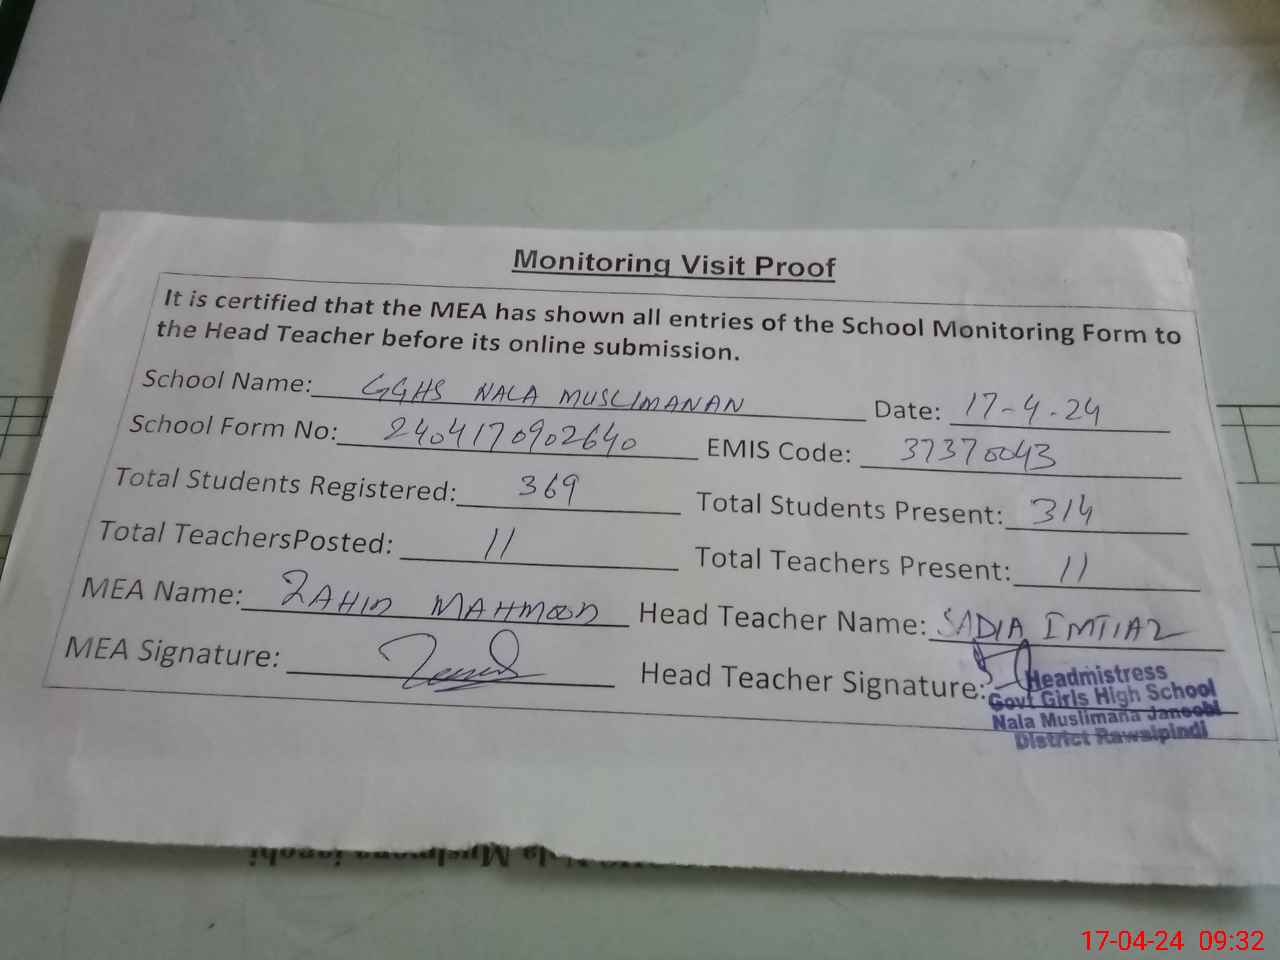 Monitoring Visit Proof
It is certified that the MEA has shown all entries of the School Monitoring Form to
the Head Teacher before its online submission.
School Name: GGHS NALA MUSLIMANAN Date: 17-4-24
School Form No: 2404170902640 EMIS Code: 37370043
Total Students Registered: 369 Total Students Present: 314
Total TeachersPosted: 11 Total Teachers Present: 11
MEA Name: ZAHID MAHMOOD Head Teacher Name: SADIA IMTIAZ
MEA Signature: Head Teacher Signature:
Headmistress
Govt Girls High School
Nala Muslimana Janoobi
District Rawalpindi
Nala Muslmana janobi
17-04-24 09:32